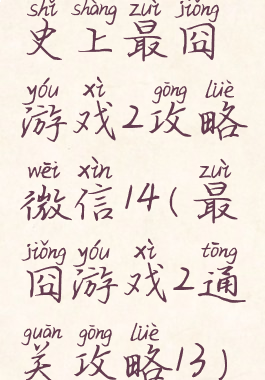 shǐ shàng zuì jiǒng
史上最囧
yóu xì gōng lüè
游戏2攻略
wēi xìn zuì
微信14(最
jiǒng yóu xì tōng
囧游戏2通
guān gōng lüè
关攻略13)